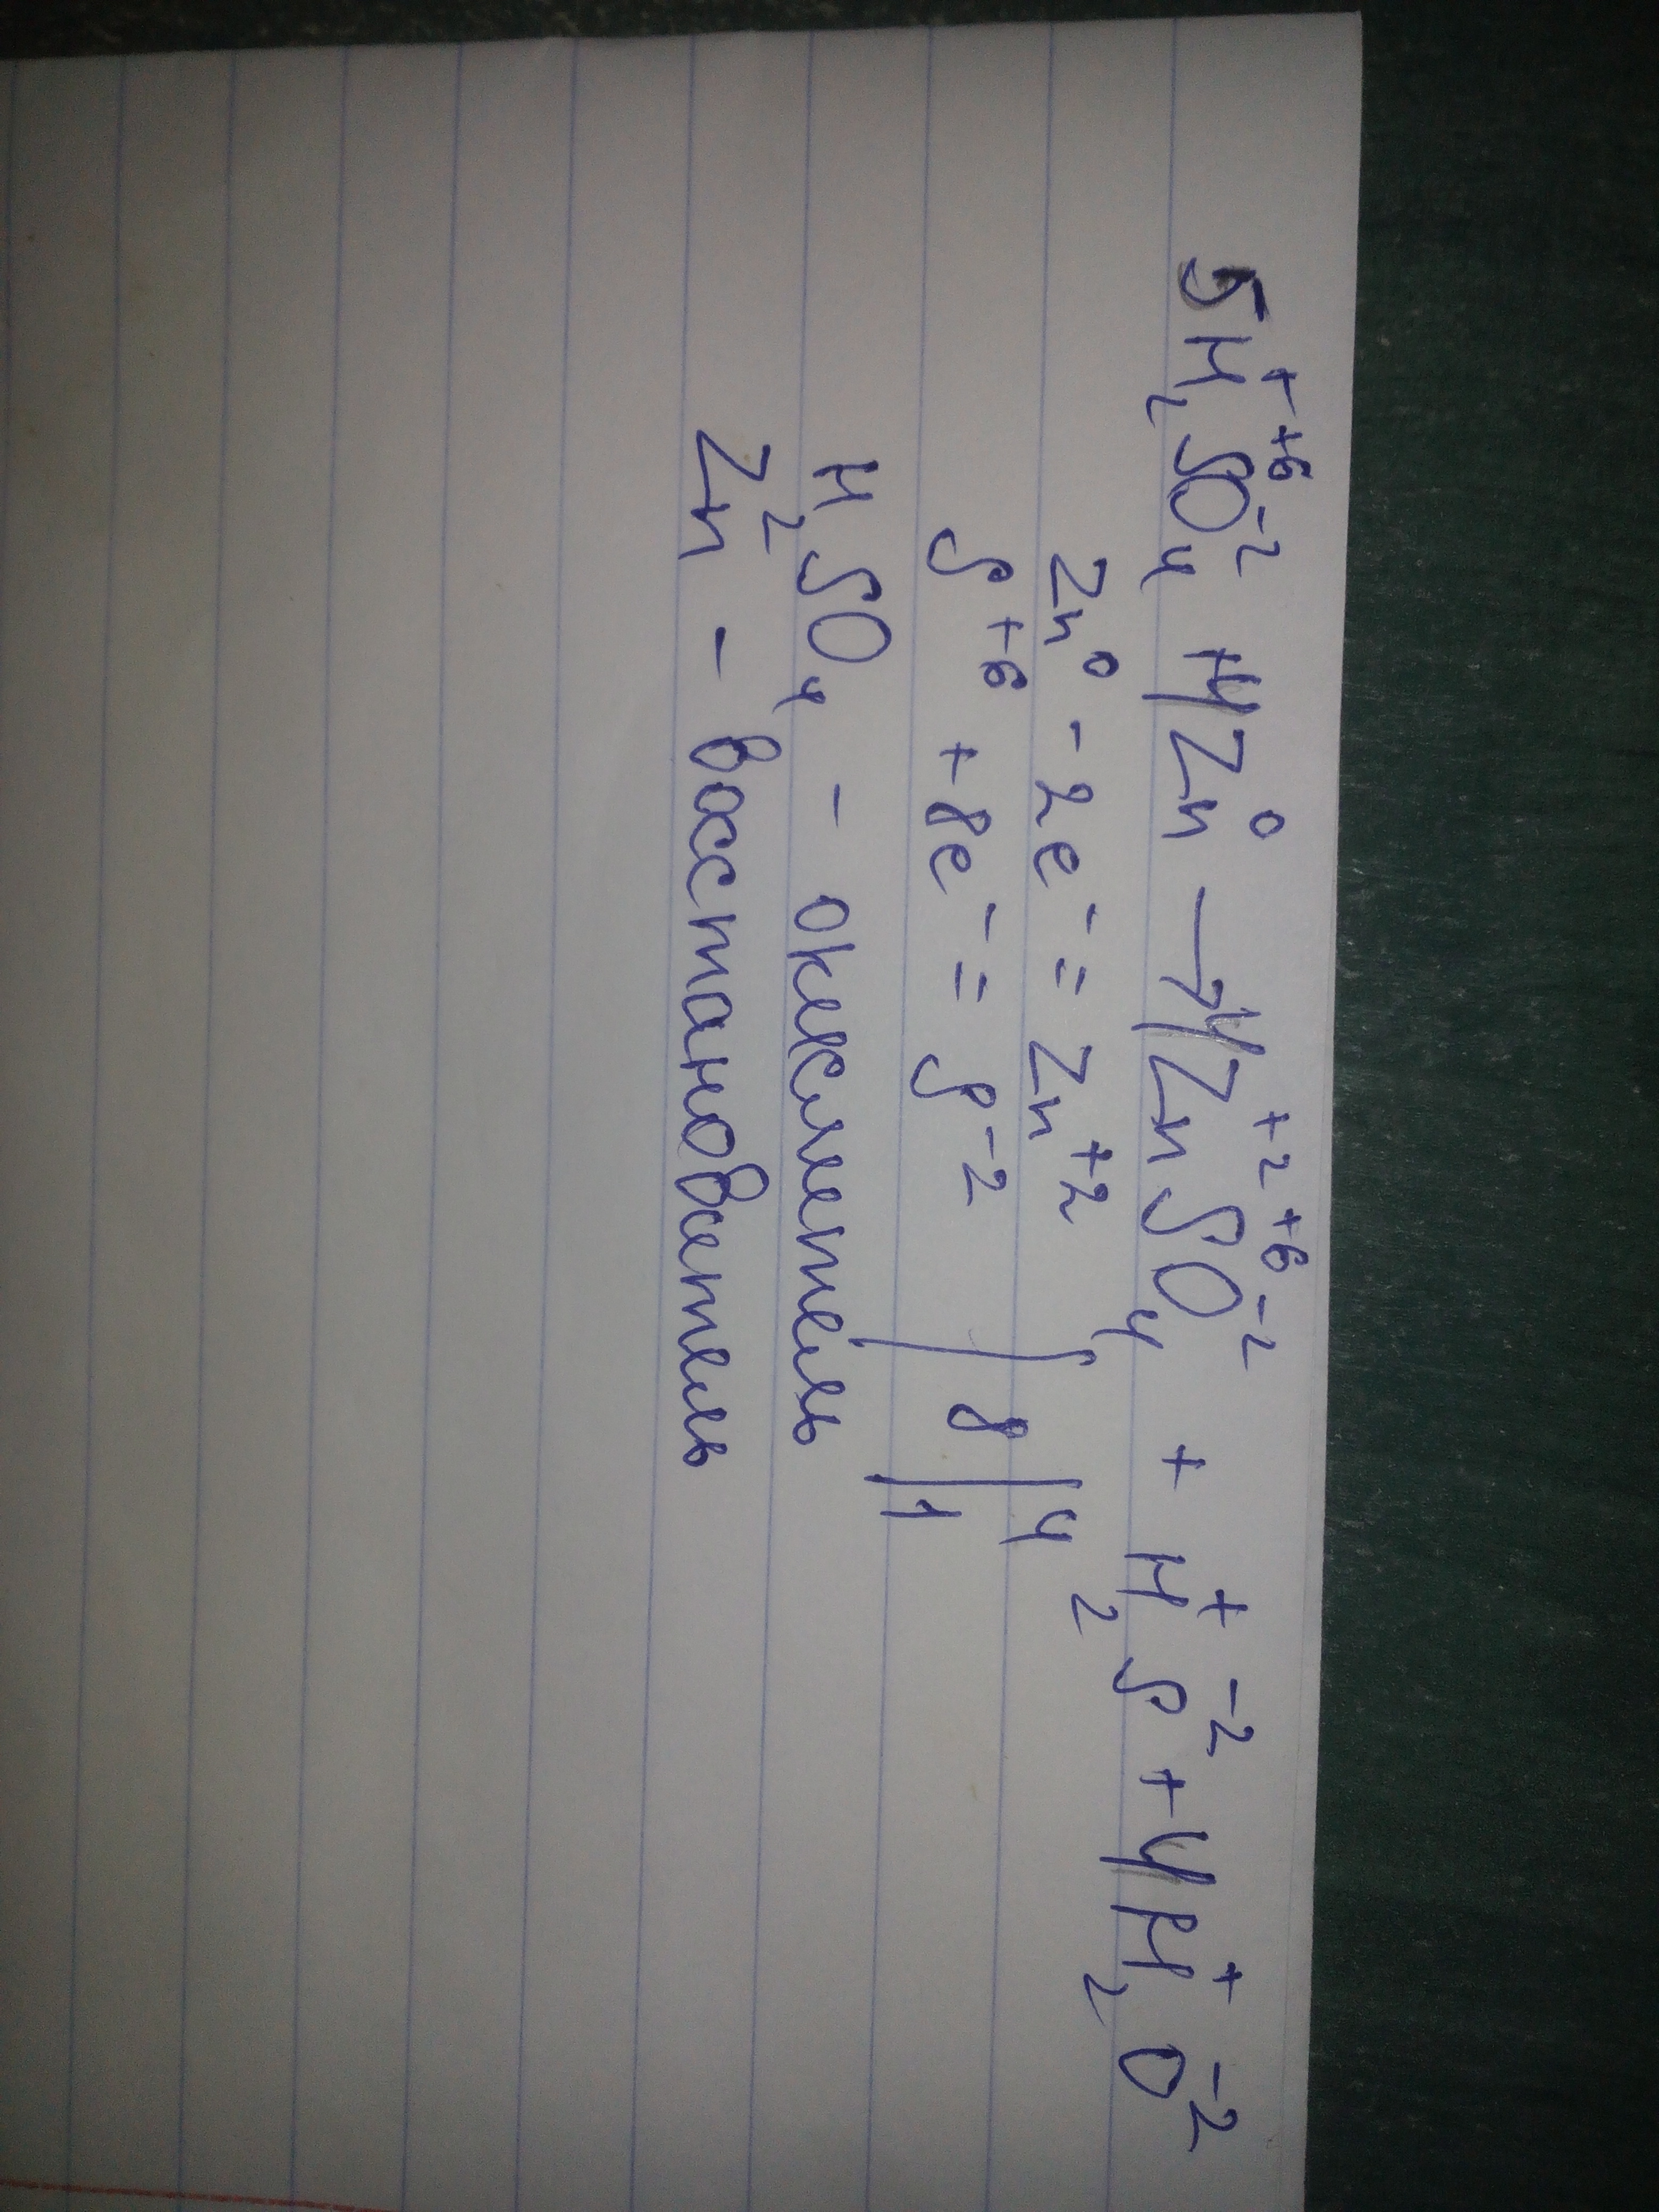 5H₂⁺S⁺⁶O₄⁻² + 4Zn⁰ → 4Zn⁺²S⁺⁶O₄⁻² + H₂⁺S⁻² + 4H₂⁺O⁻²
Zn⁰ - 2e⁻ = Zn⁺² | 8 | 4
S⁺⁶ + 8e⁻ = S⁻² | | 1
H₂SO₄ - окислитель
Zn - восстановитель